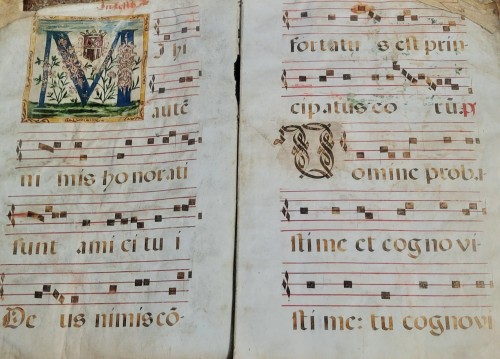 M i hi
autē
ni mis honorati
sunt ami ci tu i
De us nimis cō-
fortatu s est prin-
cipatus co rū. ps
Domine proba-
sti me et cogno vi-
sti me: tu cognovi